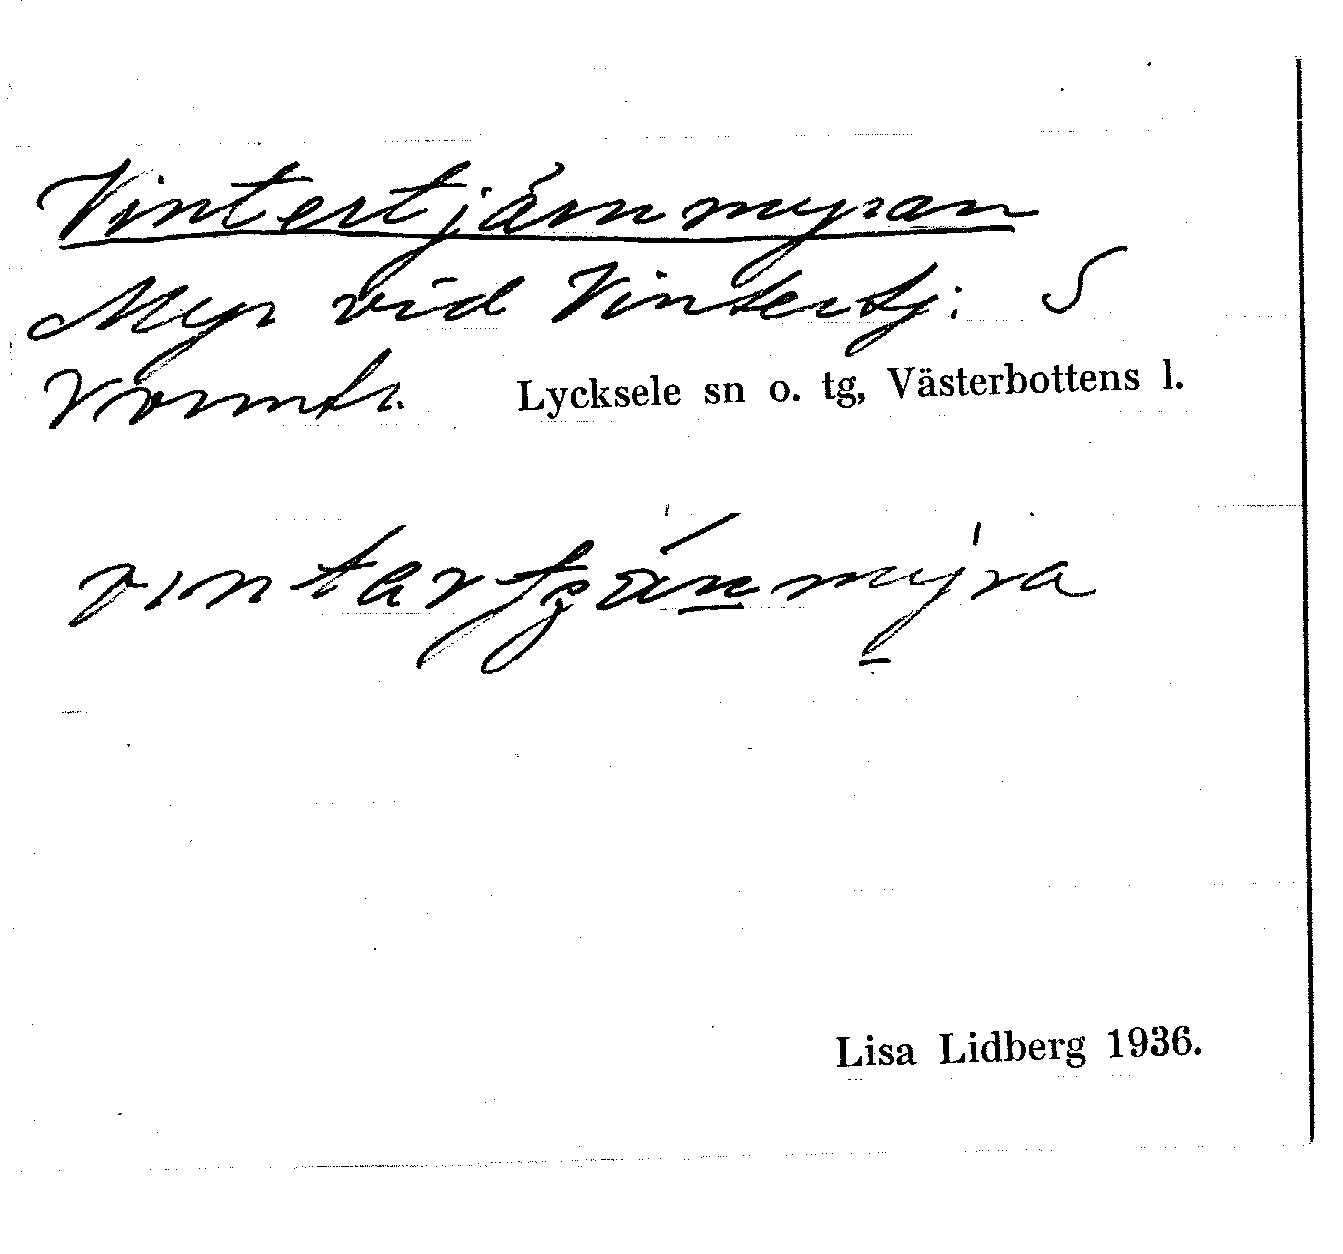 Vintertjärnmyran
Myr vid Vintertj: S
Vormtr. Lycksele sn o. tg, Västerbottens l.
Lisa Lidberg 1936.